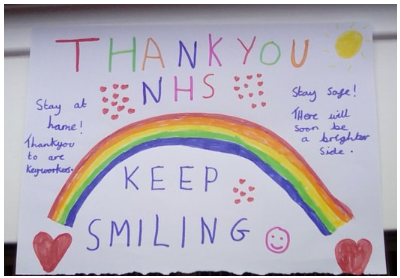 THANK YOU
NHS
Stay at
home!
Thankyou
to are
keyworkers.
Stay safe!
There will
soon be
a brighter
side.
KEEP
SMILING